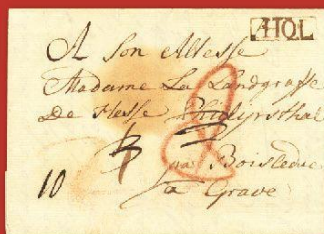 AHOL
A Son Altesse
Madame La Landgraffe
De Hesse Philipsthal
par Boisleduc
a Grave
10